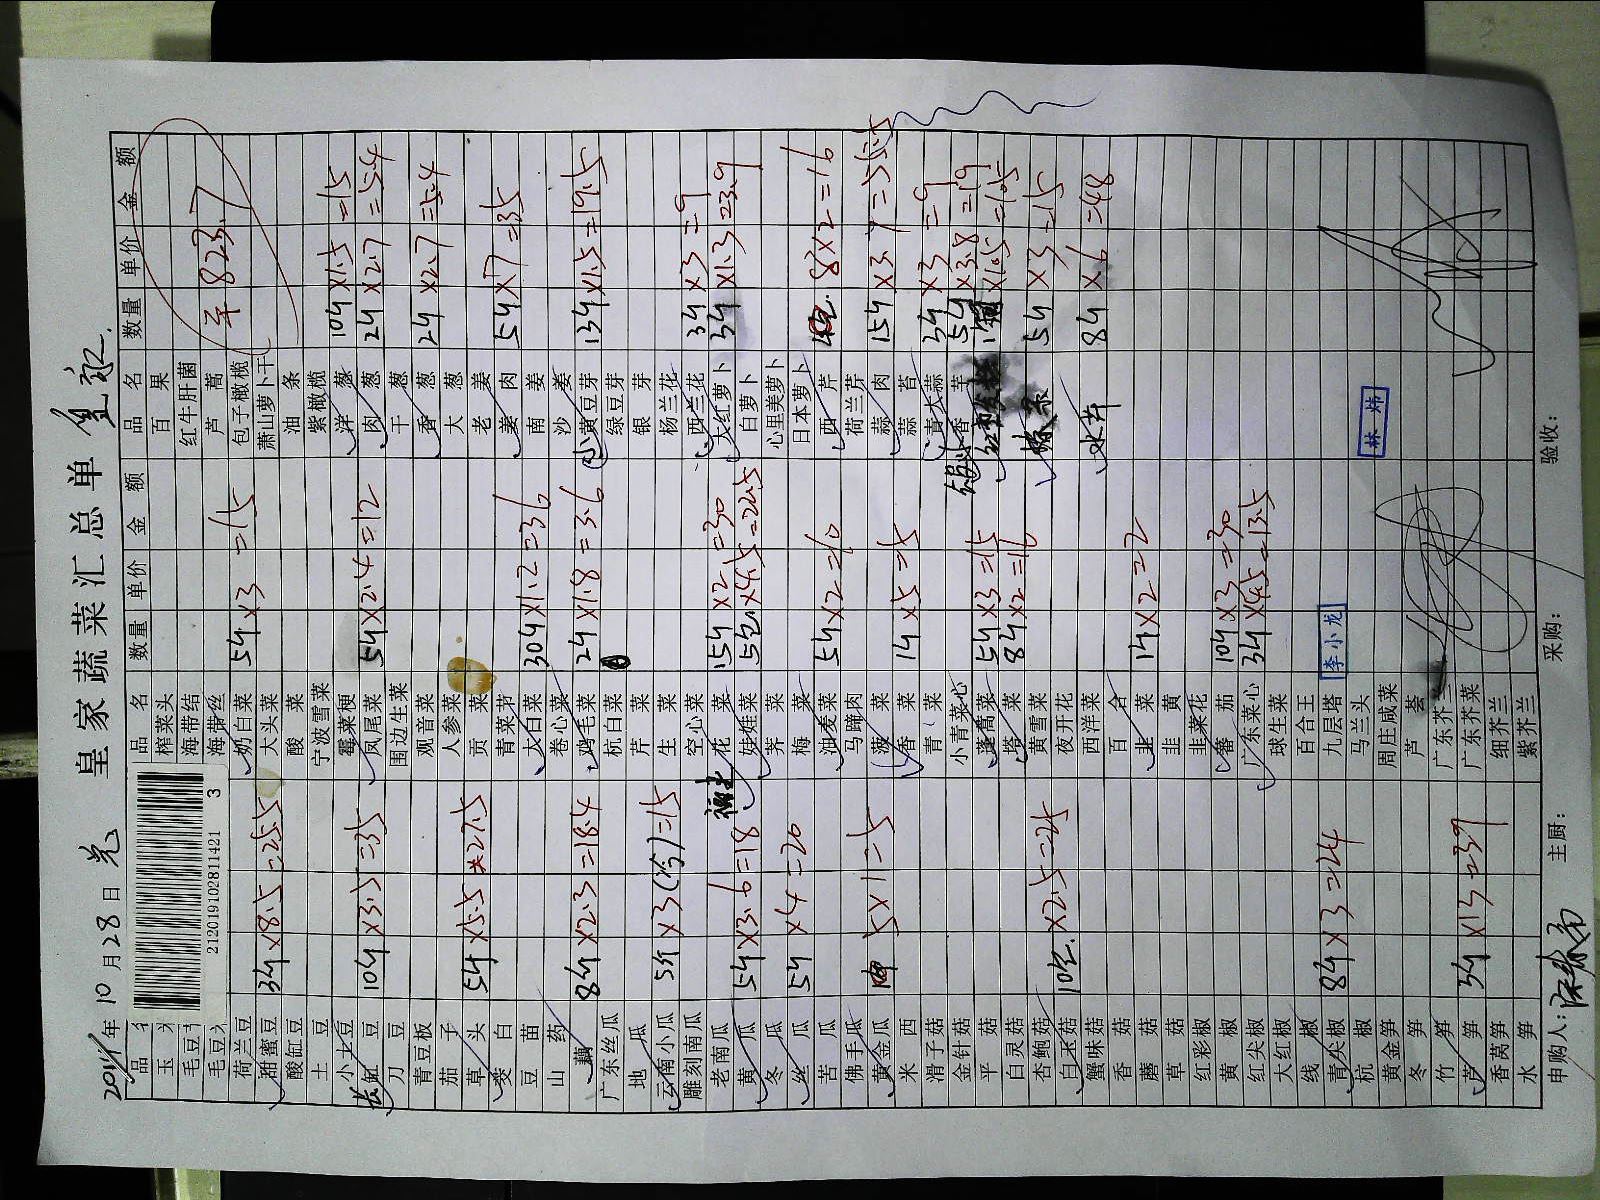 2014年10月28日 皇家蔬菜汇总单
2120191028114213
品 品名 数量 单价 金额 品名 数量 单价 金额
玉米 榨菜头 百果
毛豆 海带结 红牛肝菌
毛豆 海带丝 芦蒿 823.7
荷兰豆 奶白菜 5斤×3=15 包子橄榄
甜蜜豆 3斤×8.5=25.5 大头菜 萧山萝卜干
酸缸豆 酸菜 油条
土豆 宁波雪菜 紫橄榄
小土豆 霉菜梗 洋葱 10斤×1.5=15
长缸豆 10斤×3.5=35 凤尾菜 5斤×2.4=12 肉葱 2斤×2.7=5.4
刀豆 围边生菜 干葱
青豆板 观音菜 香葱 2斤×2.7=5.4
茄子 人参菜 大葱
草头 5斤×5.5=27.5 贡菜 老姜
茭白 青菜艿 姜肉 5斤×7=35
豆苗 大白菜 30斤×1.2=36 南姜
山药 卷心菜 沙姜
藕 8斤×2.3=18.4 鸡毛菜 2斤×1.8=3.6 小黄豆芽 13斤×1.5=19.5
广东丝瓜 杭白菜 绿豆芽
地瓜 芹菜 银芽
云南小瓜 5斤×3(冷)=15 生菜 杨兰花
雕刻南瓜 空心菜 西兰花 3斤×3=9
老南瓜 花菜 15斤×2=30 大红萝卜 3斤×1.3=3.9
黄瓜 5斤×3.6=18 娃娃菜 5包×4.5=22.5 白萝卜
冬瓜 荠菜 心里美萝卜
丝瓜 5斤×4=20 梅菜 日本萝卜
苦瓜 油麦菜 5斤×2=10 西芹 8×2=16
佛手瓜 马蹄肉 荷兰芹
黄金瓜 5×1=5 菠菜 蒜肉 15斤×3.7=55.5
米西 香菜 1斤×5=5 蒜苔
滑子菇 青菜 青大蒜 3斤×3=9
金针菇 小青菜心 香芋 5斤×3.8=19
平菇 蓬蒿菜 5斤×3=15 ×10.5=10.5
白灵菇 塔菜 8斤×2=16
杏鲍菇 黄雪菜 5斤×3=15
白玉菇 10包×2.5=25 夜开花
蟹味菇 西洋菜 水芹 8斤×6=48
香菇 百合
蘑菇 韭菜 1斤×2=2
草菇 韭黄
红彩椒 韭菜花
黄椒 番茄 10斤×3=30
红尖椒 广东菜心 3斤×4.5=13.5
大红椒 球生菜
线椒 百合王
青尖椒 8斤×3=24 九层塔 李小龙
杭椒 马兰头 林炜
黄金笋 周庄咸菜
冬笋 芦荟
竹笋 广东芥兰
芦笋 3斤×13=39 广东芥菜
香莴笋 细芥兰
水笋 紫芥兰
申购人: 主厨: 采购: 验收: